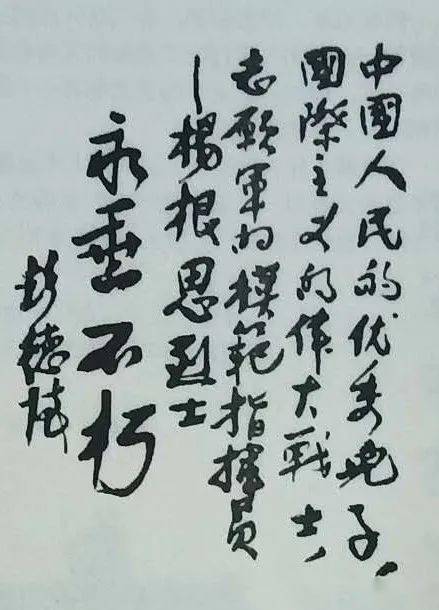 中國人民的优秀兒子，
國際主义的偉大戰士，
志願軍的模範指揮員
—楊根思烈士
永垂不朽
彭德怀